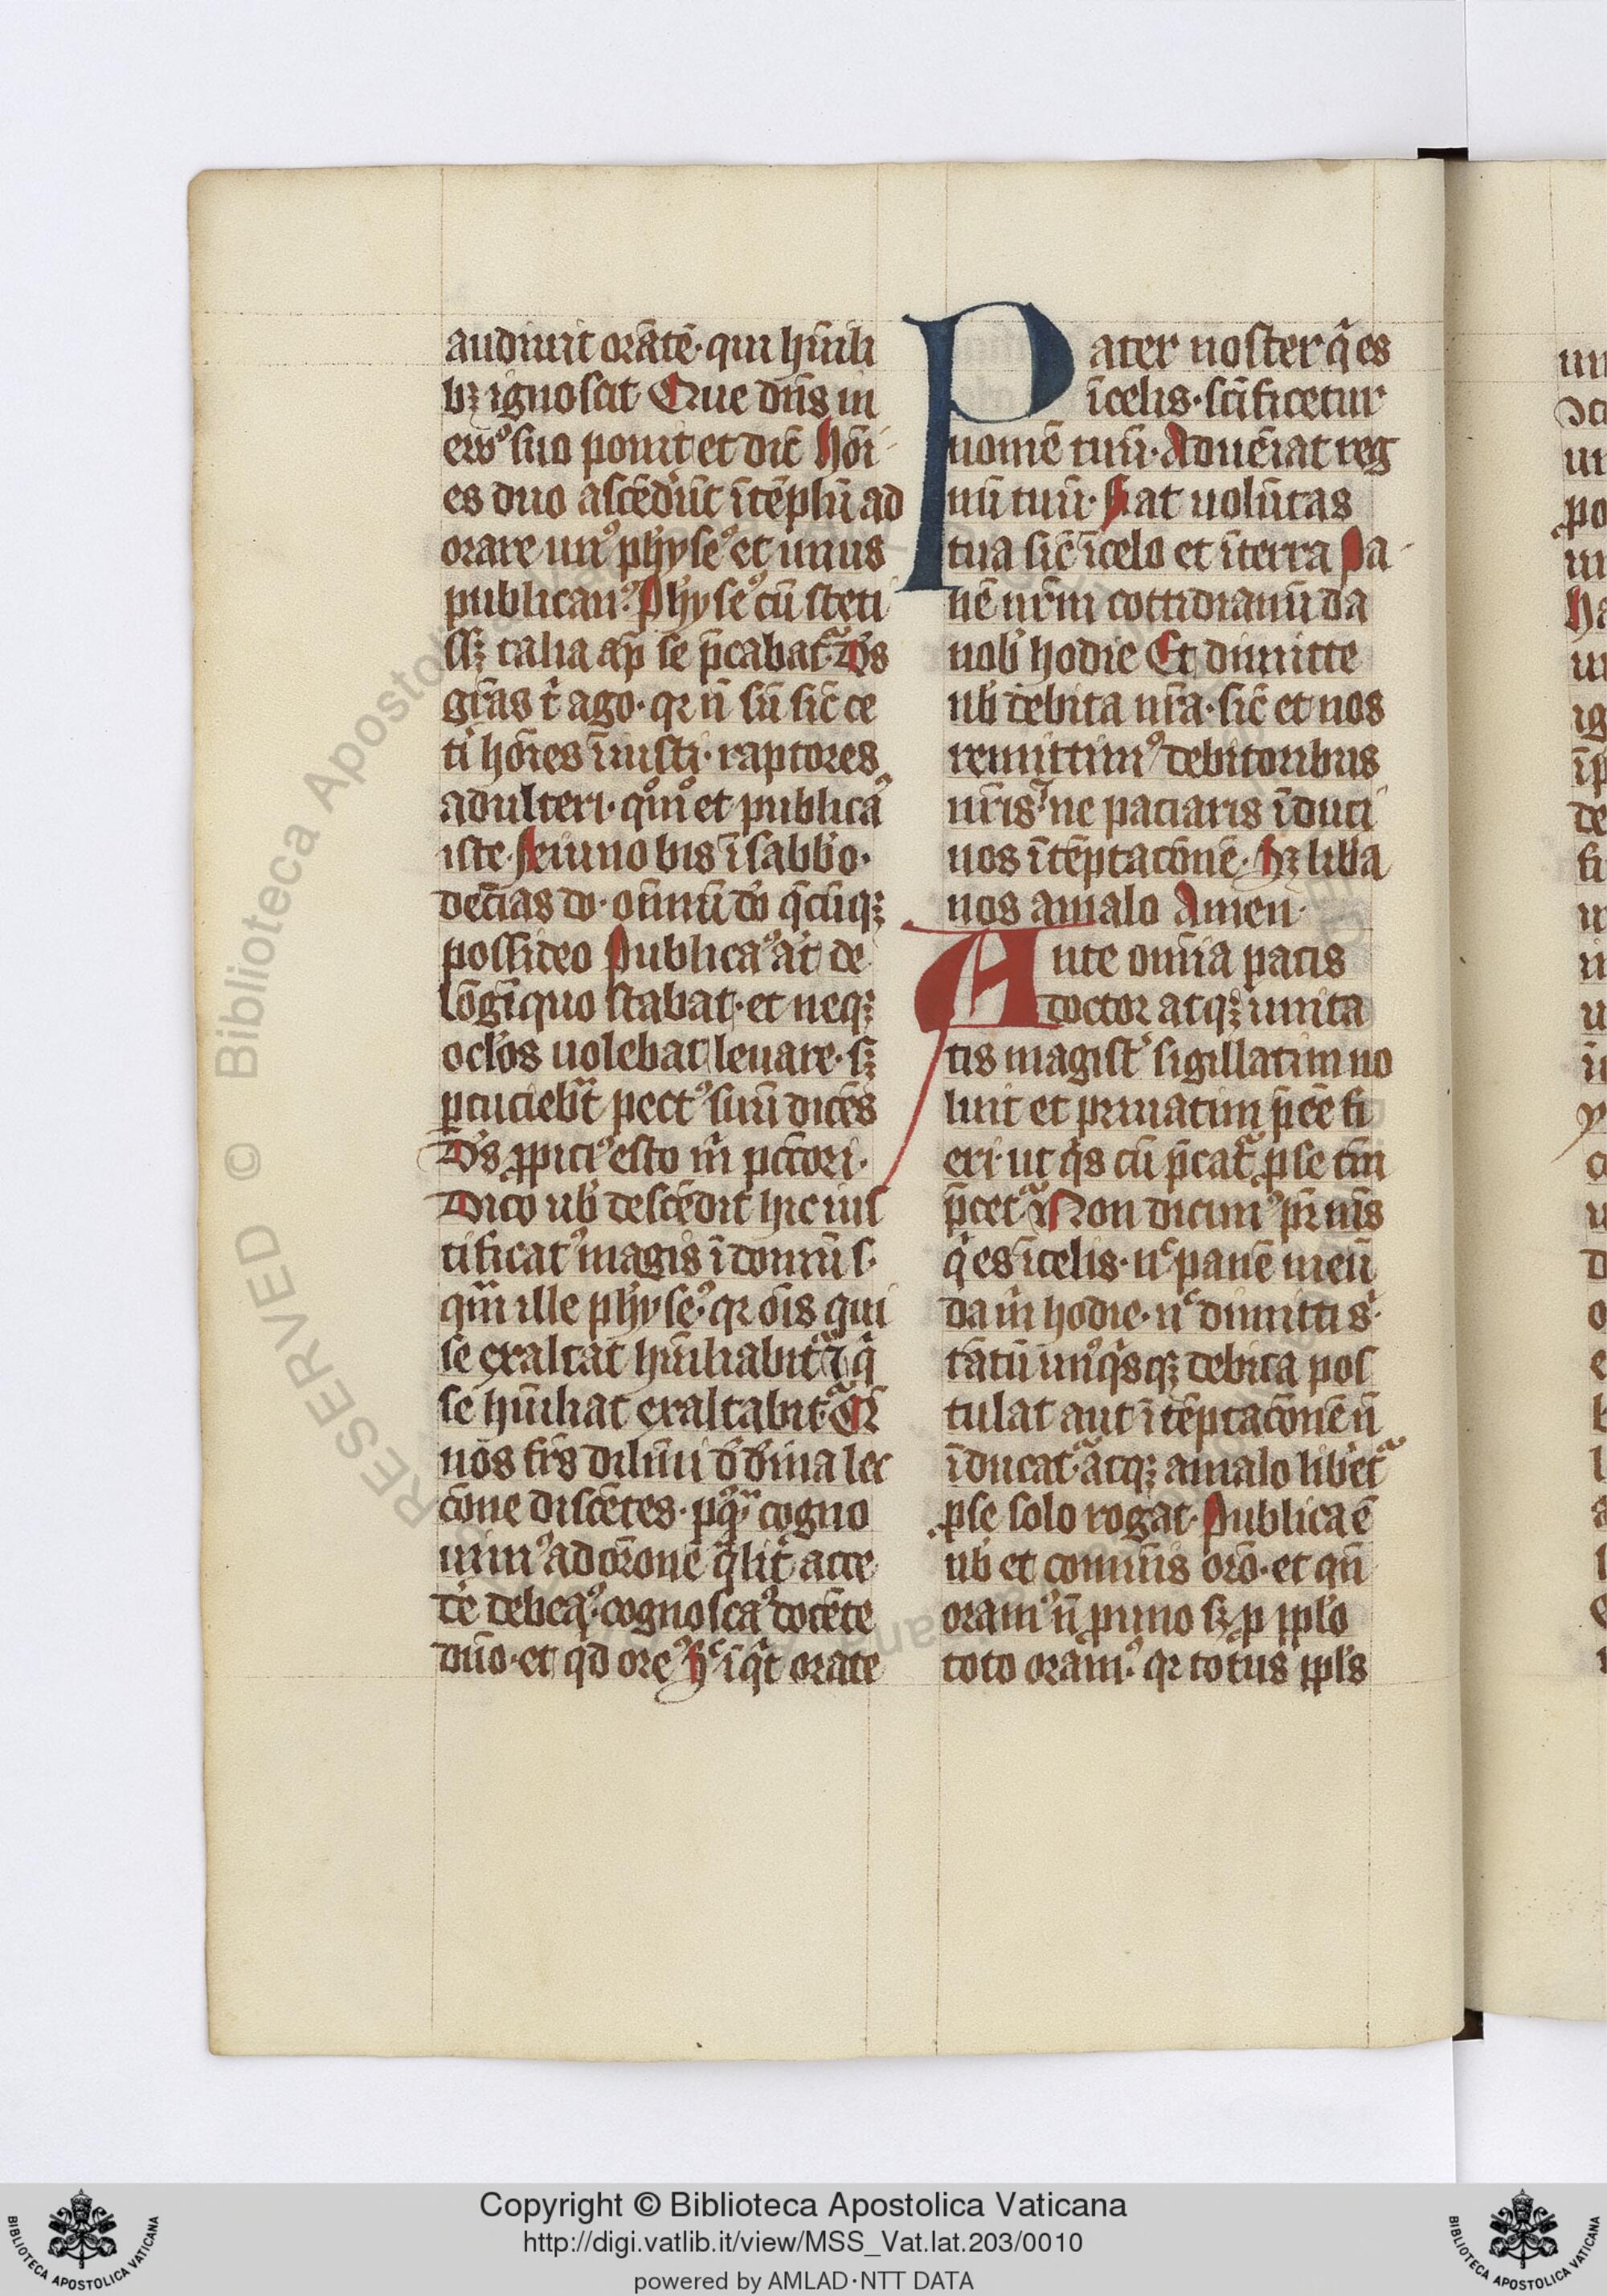 audiuit orātē · qui hūili
bꝫ ignoscit Que dn̄s in
ew̄ꝰ suo ponit et dic̄ Hōi
es duo ascēdūt ītēplū ad
orare unꝰ physeꝰ et unus
publicanꝰ. Physeꝰ cū steti
sꝫ talia ap̄ se p̄cabatᷣ D̄s
gr̄as t̄ ago · qr n̄ sū sic̄ ce
ti hōies īiusti · raptores
adulteri · qͦmͦ et publicaꝰ
iste · Ieiuno bis ī sabb̄o ·
decīas do · om̄niū do q̄cūqꝫ
possideo Publicaꝰ at̄ de
lōgīquo stabat · et neqꝫ
ocl̄os uolebat leuare · sꝫ
ꝑcuciebat̄ pectꝰ suū dicēs
D̄s ꝓpiciꝰ esto m̄ pcc̄ori ·
Dico ub̄ descēdit hic ius
tificatꝰ magis ī domū s ·
qm̄ ille physeꝰ · qr ōis qui
se exaltat hūiliabitᷣ ⁊ q̄
se hūiliat exaltabitᷣ
nōs frs̄ dilc̄ti d̄ d̄iuina lec
cōne discētes · pqᷓ cogno
uimꝰ ad orōnē q̄lit̄ acce
dē debeaꝰ · cognoscaꝰ docēte
dn̄o · et qd oreꝰ Hͨ īqͥt orate
Pater noster q̄ es
īcelis · scīficetur
nomē tuū · Aduēiat reg
nū tuū · Fiat uolūtas
tua sic̄ īcelo et īterra Pa
nē nr̄m cottidianū da
nob̄ hodie Et dimitte
nb̄ debita nr̄a · sic̄ et nos
remittimꝰ debitoribus
nr̄is ⁊ ne paciaris īduci
nos ītēptacōnē · Sꝫ lib̄a
nos amalo Amen ·
Ante om̄ia pacis
doctor atqꝫ unita
tis magist̄ sigillatim no
luit et priuatim p̄cē fi
eri · ut q̄s cū p̄catᷣ ꝓse tm̄
p̄cetᷣ Non dicimꝰ pr̄ mīs
q̄ es īcelis · nͨ panē meū
da m̄ hodie · nͨ dimitti s ·
tātū unꝰqͥsqꝫ debita pos
tulat aut ī tēptacōnē n̄
īducatᷣ atqꝫ amalo libetᷣ
ꝓse solo rogat · Publica ē
nb̄ et comūis orō · et qn̄
oramꝰ n̄ ꝓ uno sꝫ ꝓ ppl̄o
toto oramꝰ · qr totus ppl̄s
RESERVED © Biblioteca Apostolica Vaticana
Copyright © Biblioteca Apostolica Vaticana
http://digi.vatlib.it/view/MSS_Vat.lat.203/0010
powered by AMLAD·NTT DATA
BIBLIOTECA APOSTOLICA VATICANA
BIBLIOTECA APOSTOLICA VATICANA